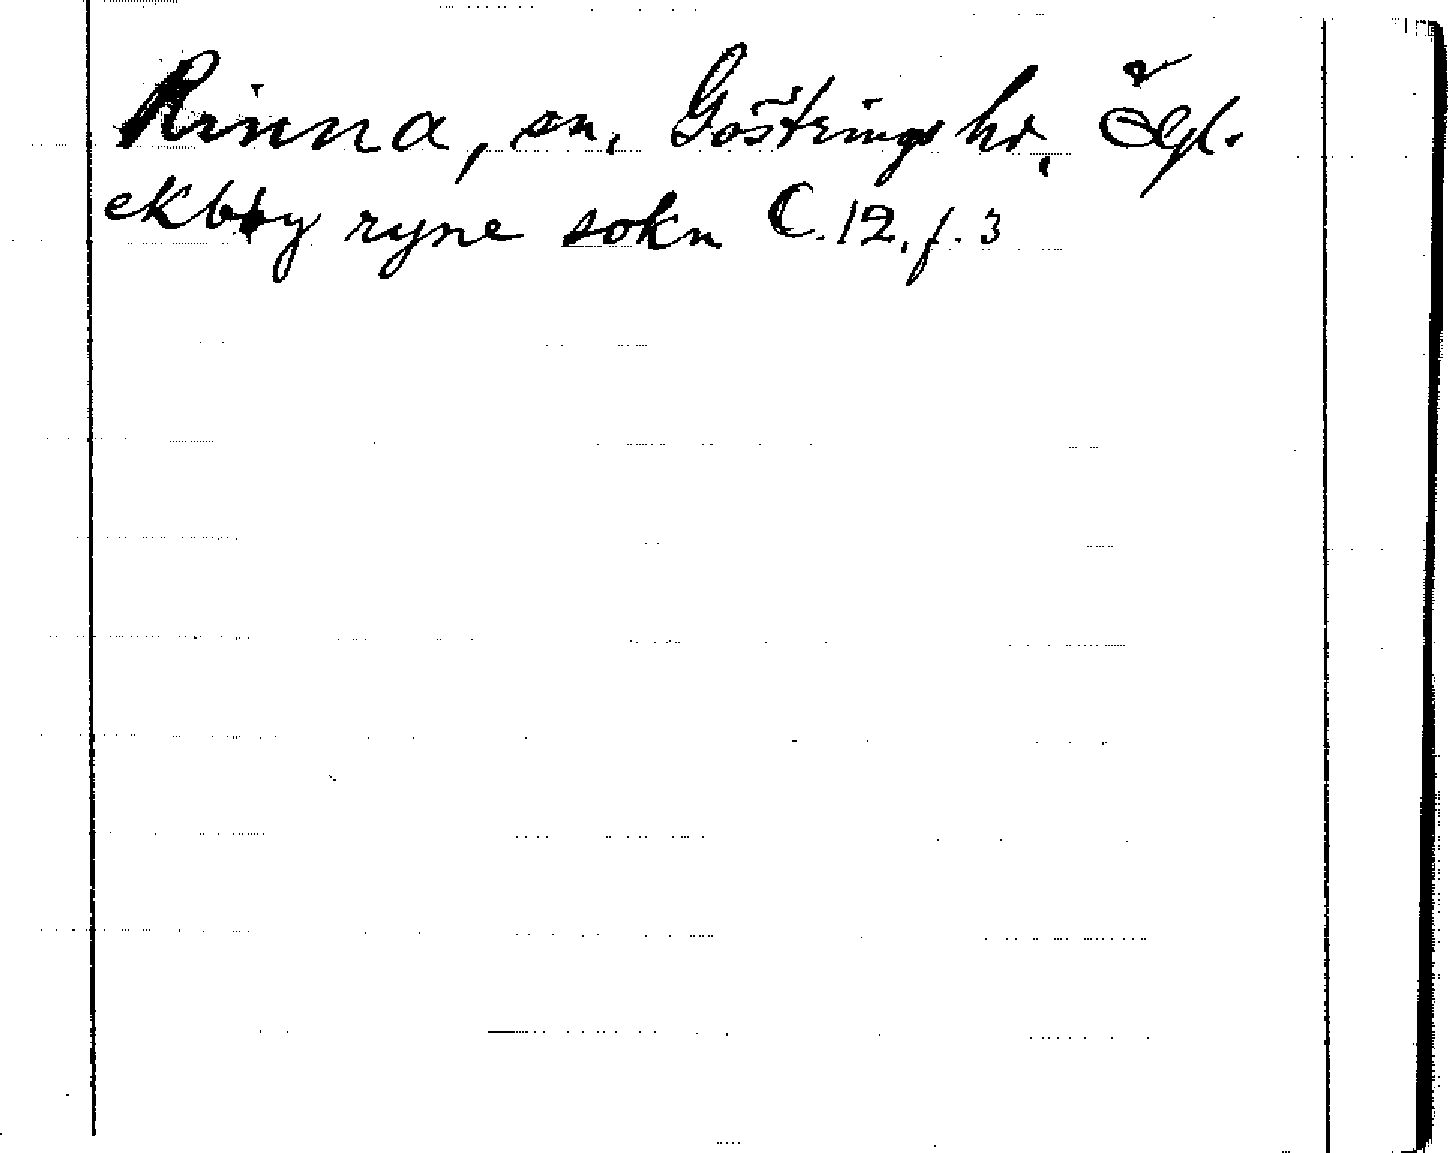 Rinna, sn, Göstrings hd, Ögl.
ekbyy ryne sokn C.12.f.3